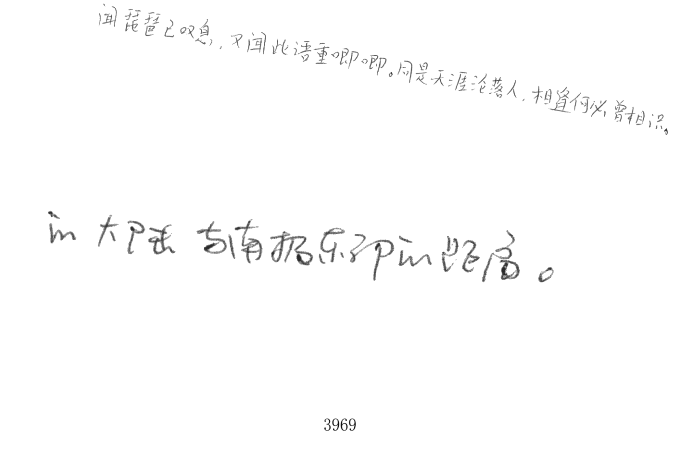 闻琵琶已叹息，又闻此语重唧唧。同是天涯沦落人，相逢何必曾相识。
大陆 与南 的距离。
3969